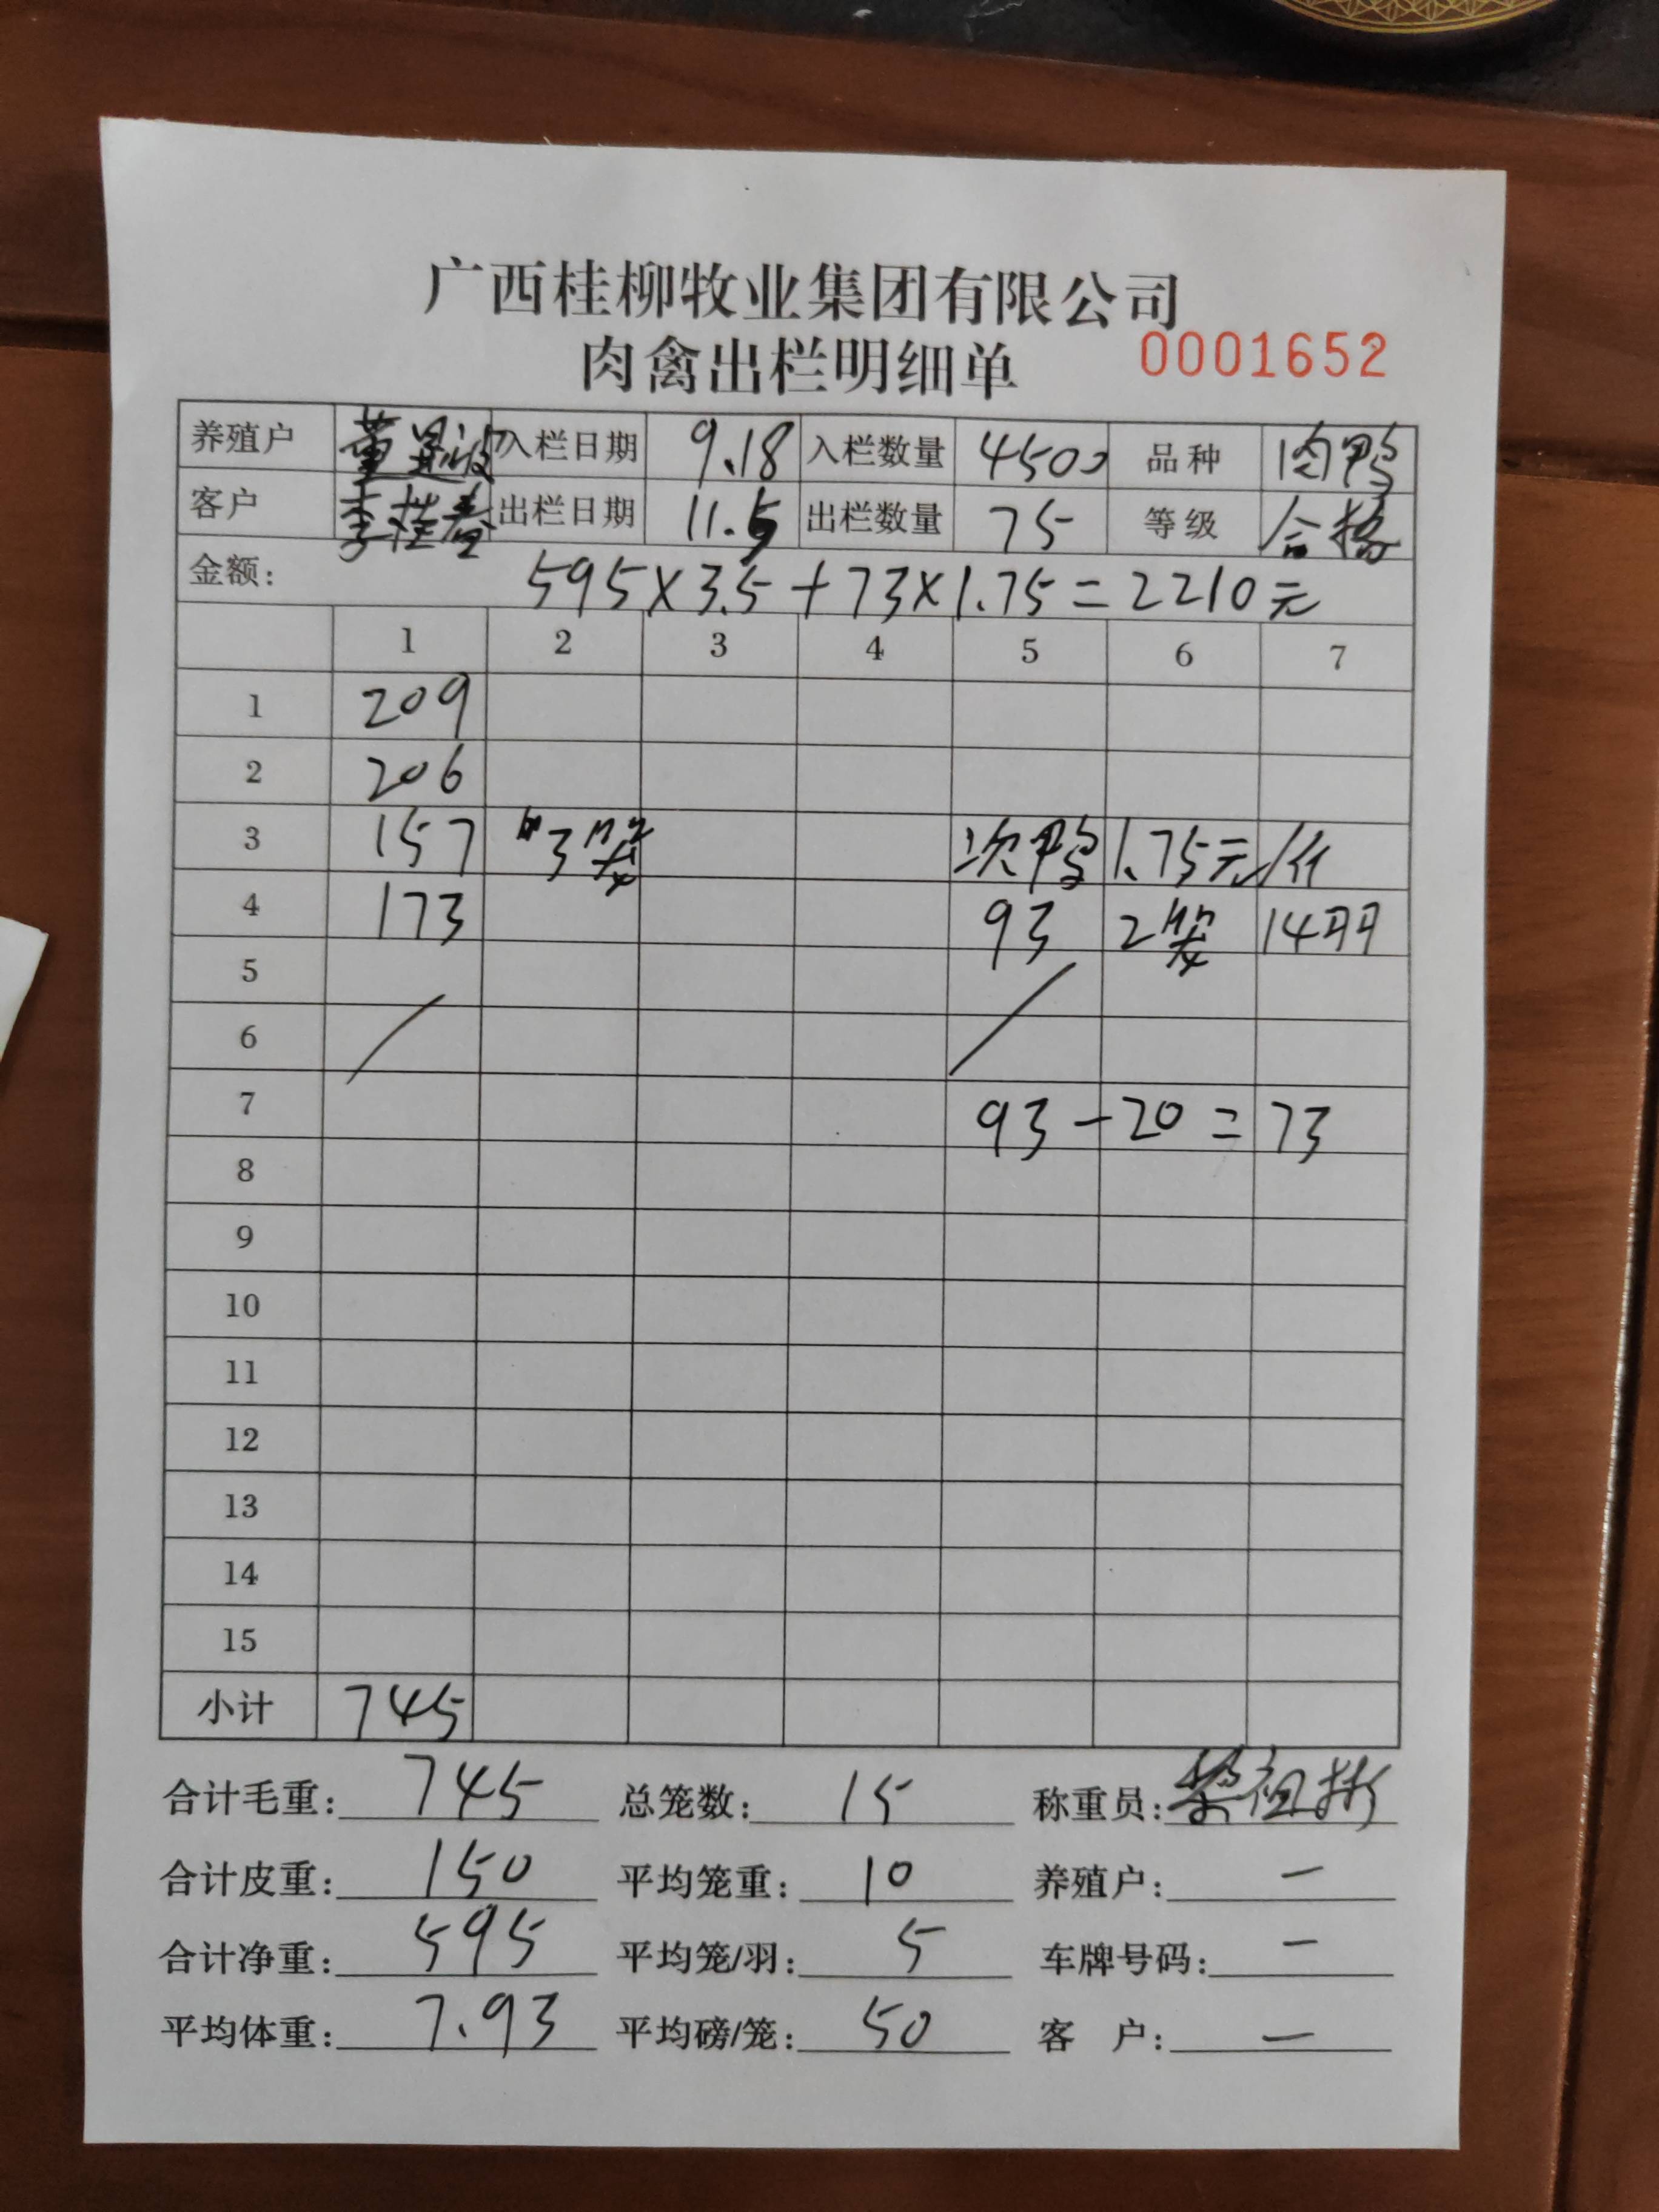 广西桂柳牧业集团有限公司
肉禽出栏明细单 0001652
养殖户 董 入栏日期 9.18 入栏数量 4500 品种 肉鸭
客户 李桂春 出栏日期 11.5 出栏数量 75 等级 合格
金额: 595×3.5+73×1.75=2210元
1 2 3 4 5 6 7
1 209
2 206
3 157 3笼 次鸭 1.75元/斤
4 173 93 2笼 14羽
5
6
7 93-20=73
8
9
10
11
12
13
14
15
小计 745
合计毛重: 745 总笼数: 15 称重员: 梁祖彬
合计皮重: 150 平均笼重: 10 养殖户: —
合计净重: 595 平均笼/羽: 5 车牌号码: —
平均体重: 7.93 平均磅/笼: 50 客 户: —